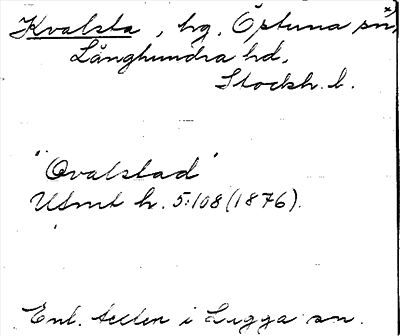 Kvalsta, hg, Östuna sn,
Långhundra hd,
Stockh. l.
"Qvalstad"
Utmt h. 5:108 (1876).
Enl. texten i Lagga sn.